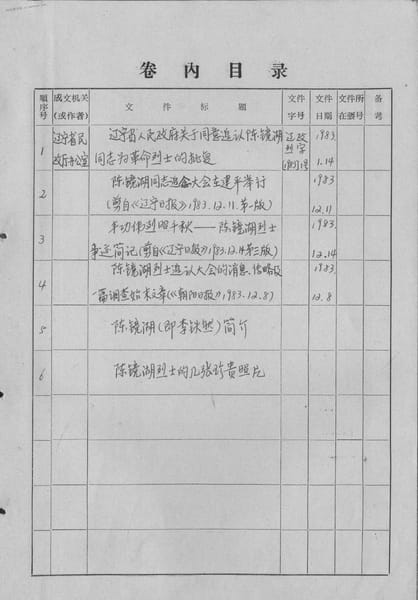 卷内目录
顺序号 成文机关(或作者) 文件标题 文件字号 文件日期 文件所在张号 备考
1 辽宁省民政厅办公室 辽宁省人民政府关于同意追认陈镜湖 辽政烈字 1983.
同志为革命烈士的批复 1.14
2 陈镜湖同志追念大会在建平举行 1983
(剪自《辽宁日报》1983.12.11.第一版) 12.11
3 丰功伟烈照千秋——陈镜湖烈士 1983.
事迹简记(剪自《辽宁日报》1983.12.14第三版) 12.14
4 陈镜湖烈士追认大会的消息、传略及 1983.
一篇调查始末文章(《朝阳日报》1983.12.8) 12.8
5 陈镜湖(即李铁然)简介
6 陈镜湖烈士的几张珍贵照片